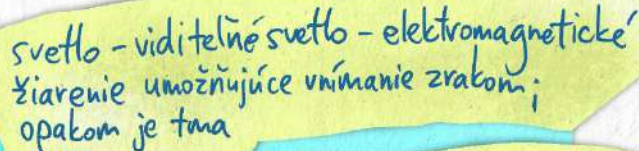 svetlo - viditeľné svetlo - elektromagnetické
žiarenie umožňujúce vnímanie zrakom;
opakom je tma